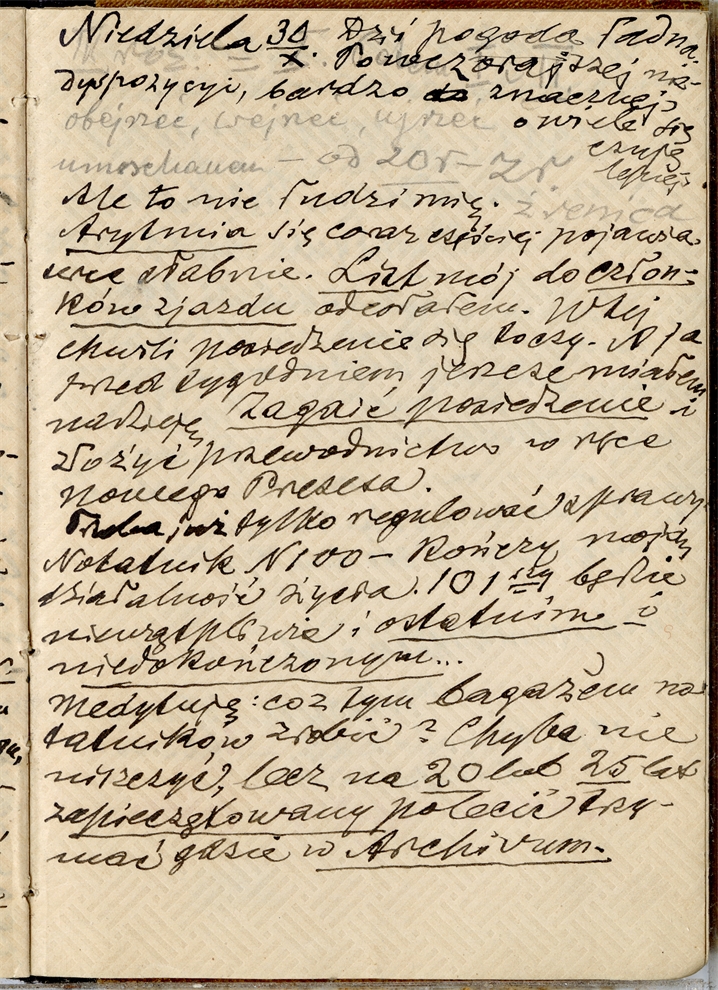 Niedziela 30/X. Dziś pogoda ładna.
Po wczorajszej nie-
dyspozycji, bardzo znacznej,
obejrzeć, wejrzeć, ujrzeć o wiele się
czuję
lepiej.
od 20 r –
Ale to nie łudzi mię.
źrenica
Arytmia się coraz częściej pojawia.
serce słabnie. List mój do człon-
ków zjazdu odesłałem. W tej
chwili posiedzenie się toczy. A ja
przed tygodniem jeszcze miałem
nadzieję zagaić posiedzenie i
złożyć przewodnictwo w ręce
nowego Prezesa.
Trzeba już tylko regulować sprawy.
Notatnik N 100 – kończy moją
działalność życia. 101szy będzie
niewątpliwie i ostatnim i
niedokończonym...
Medytuję: co z tym bagażem no-
tatników zrobić? Chyba nie
niszczyć, lecz na 20 lub 25 lat
zapieczętowany polecić trzy-
mać gdzie w Archivum.